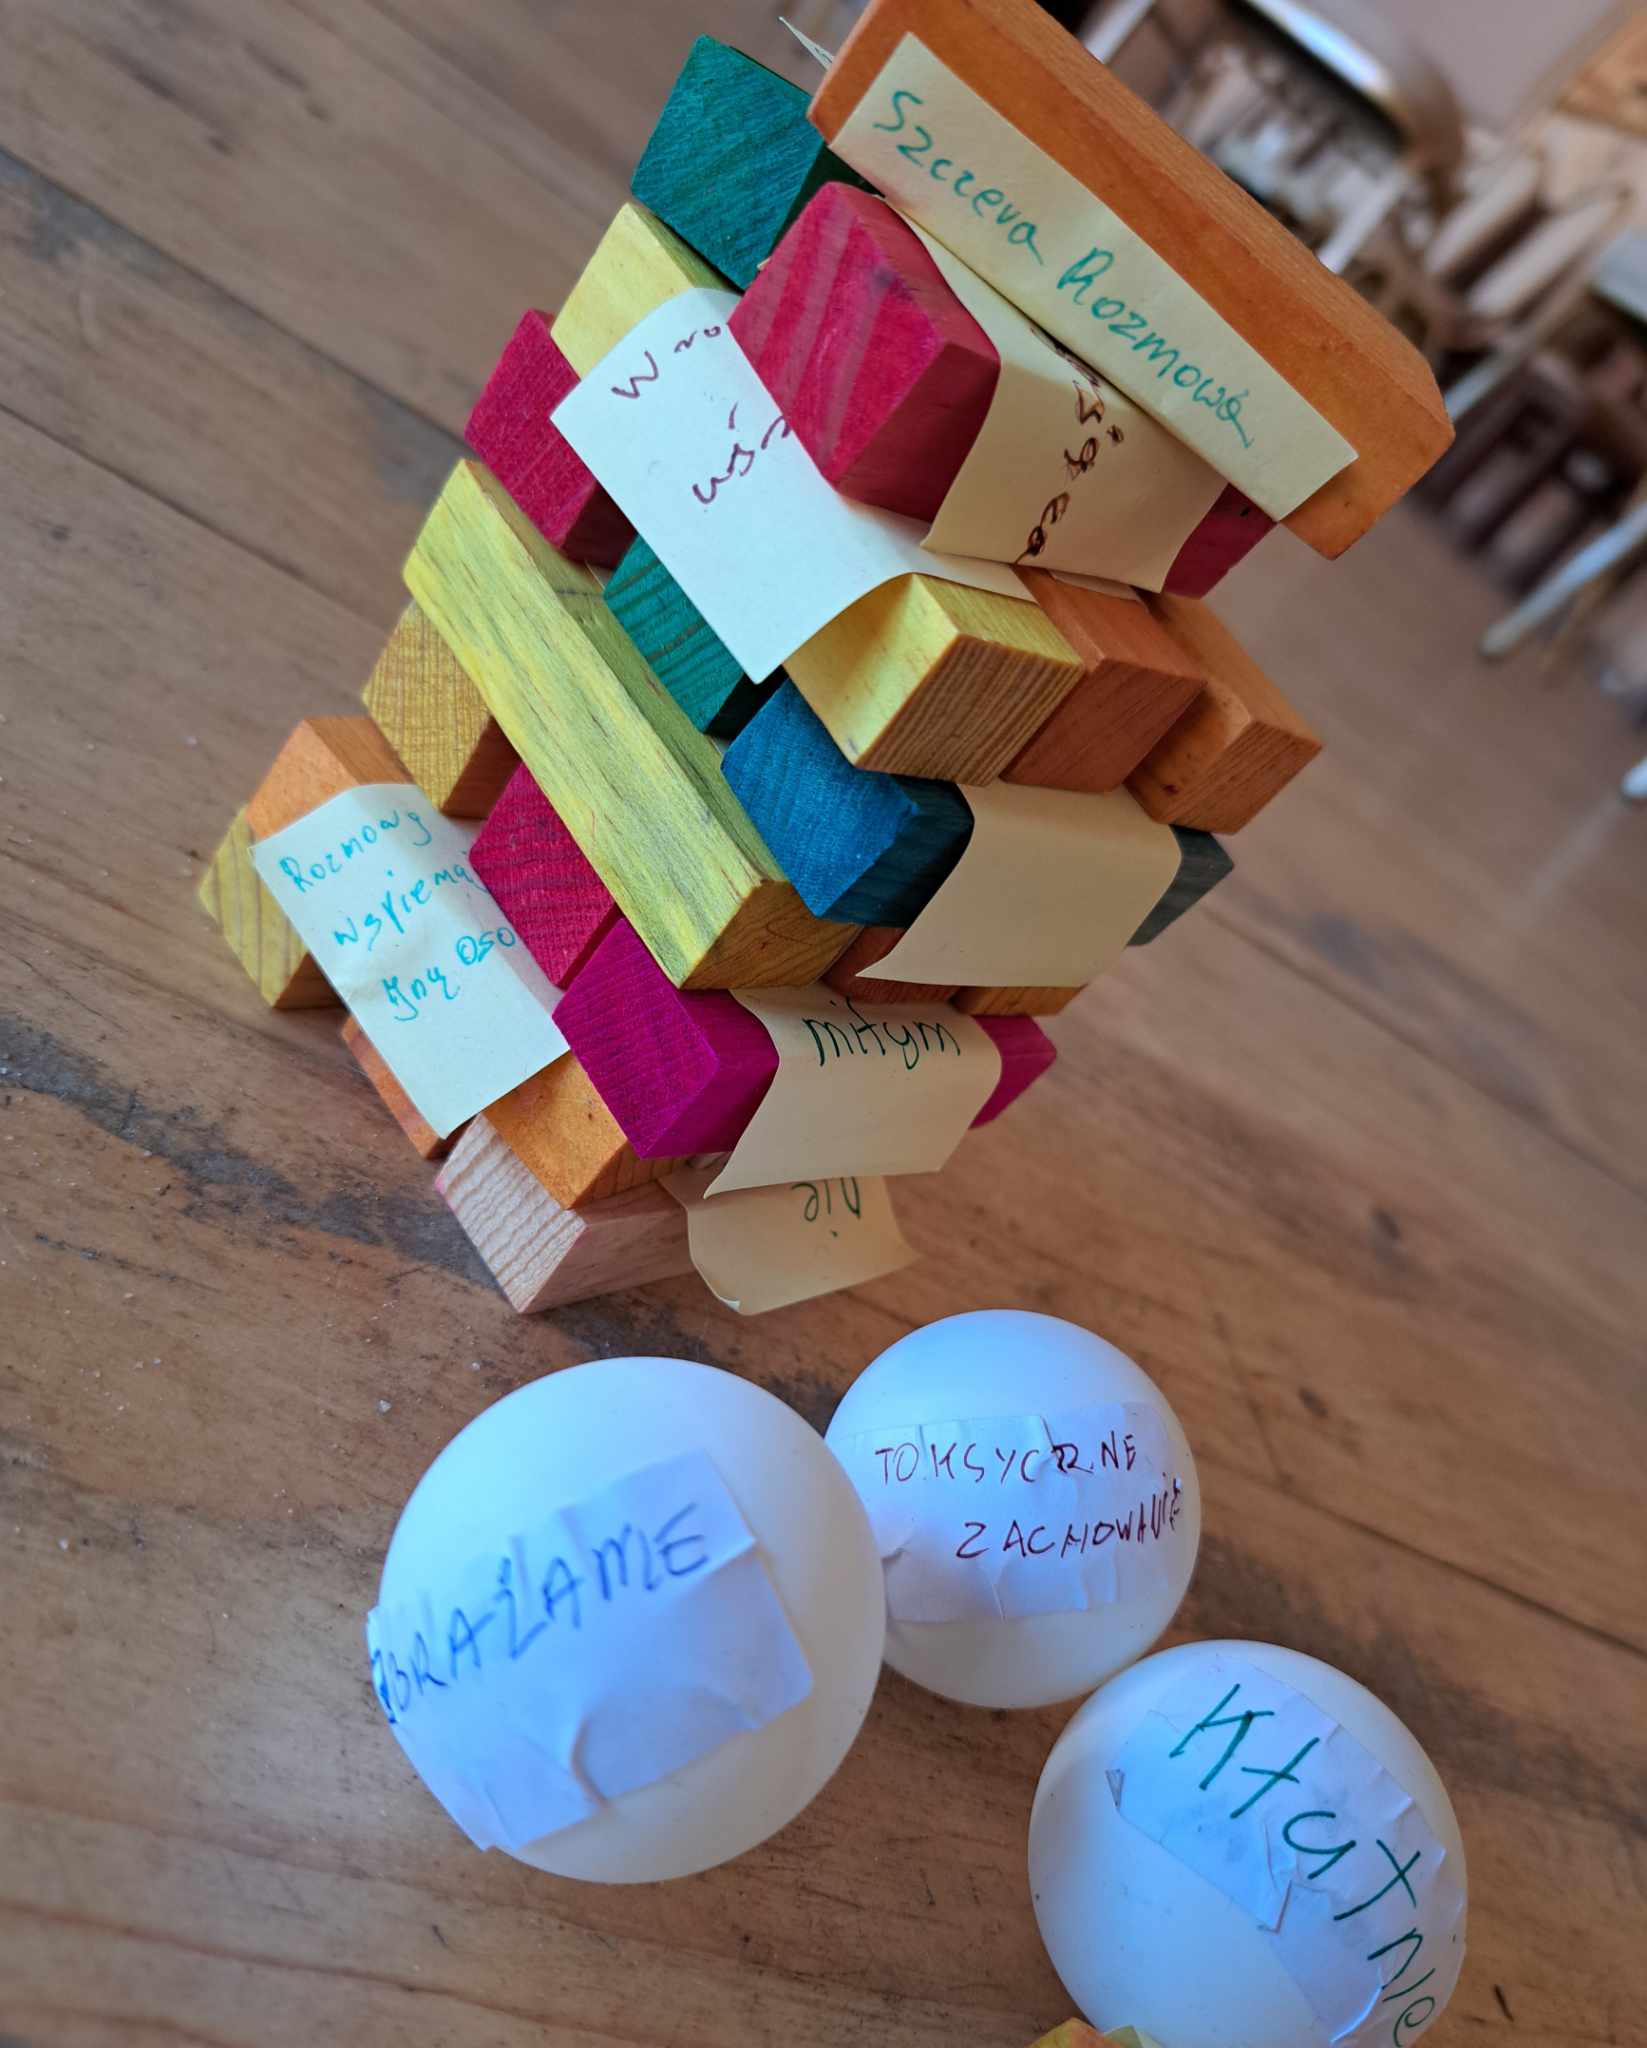 Szczera Rozmowa
Rozmowy
wspiemaj
Jną oso
miłym
nie
OBRAŻANIE
TOKSYCZNE
ZACHOWANIE
Kłutnie